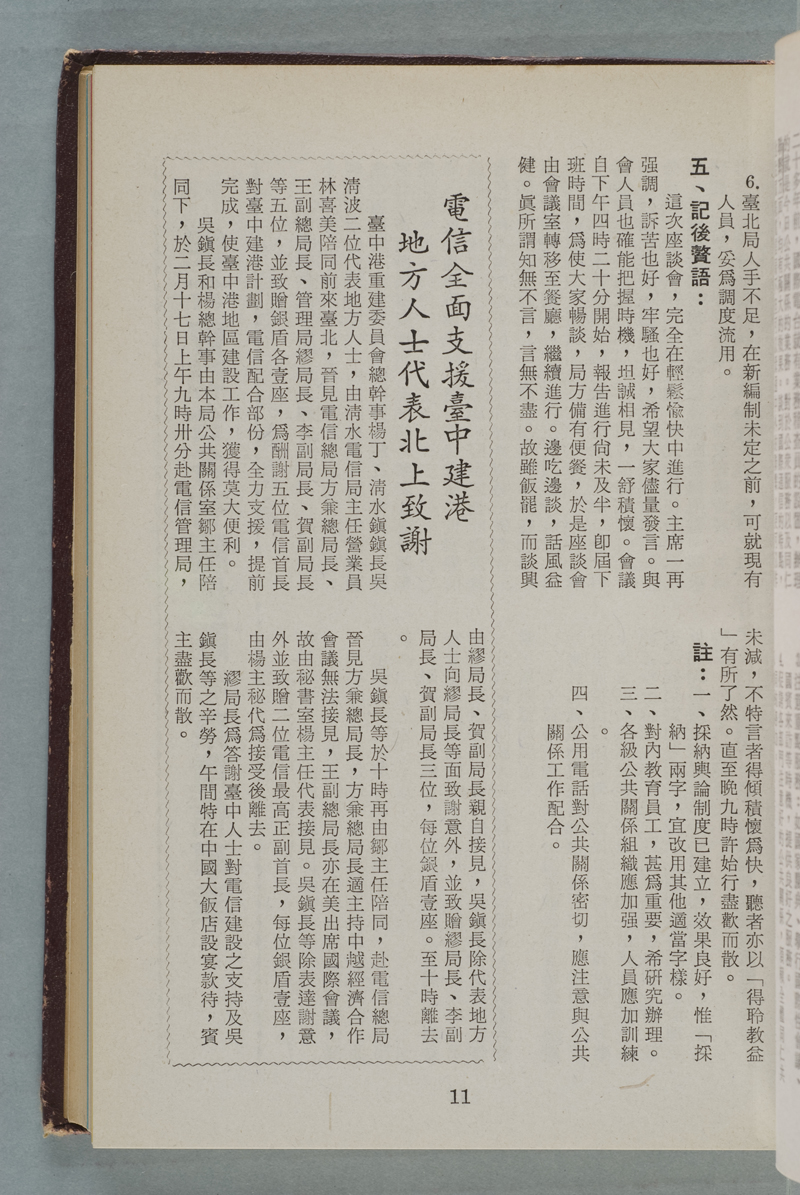 6.臺北局人手不足，在新編制未定之前，可就現有
人員，妥爲調度流用。
五、記後贅語：
這次座談會，完全在輕鬆愉快中進行。主席一再
强調，訴苦也好，牢騷也好，希望大家儘量發言。與
會人員也確能把握時機，坦誠相見，一舒積懷。會議
自下午四時二十分開始，報告進行尙未及半，卽屆下
班時間，爲使大家暢談，局方備有便餐，於是座談會
由會議室轉移至餐廳，繼續進行。邊吃邊談，話風益
健。眞所謂知無不言，言無不盡。故雖飯罷，而談興
未減，不特言者得傾積懷爲快，聽者亦以「得聆教益
」有所了然。直至晚九時許始行盡歡而散。
註：一、採納輿論制度已建立，效果良好，惟「採
納」兩字，宜改用其他適當字樣。
二、對內教育員工，甚爲重要，希硏究辦理。
三、各級公共關係組織應加强，人員應加訓練
。
四、公用電話對公共關係密切，應注意與公共
關係工作配合。
電信全面支援臺中建港
地方人士代表北上致謝
臺中港重建委員會總幹事楊丁、淸水鎭鎭長吳
淸波二位代表地方人士，由淸水電信局主任營業員
林喜美陪同前來臺北，晉見電信總局方兼總局長、
王副總局長、管理局繆局長、李副局長、賀副局長
等五位，並致贈銀盾各壹座，爲酬謝五位電信首長
對臺中建港計劃，電信配合部份，全力支援，提前
完成，使臺中港地區建設工作，獲得莫大便利。
吳鎭長和楊總幹事由本局公共關係室鄒主任陪
同下，於二月十七日上午九時卅分赴電信管理局，
由繆局長、賀副局長親自接見，吳鎭長除代表地方
人士向繆局長等面致謝意外，並致贈繆局長、李副
局長、賀副局長三位，每位銀盾壹座。至十時離去
。
吳鎭長等於十時再由鄒主任陪同，赴電信總局
晉見方兼總局長，方兼總局長適主持中越經濟合作
會議無法接見，王副總局長亦在美出席國際會議，
故由秘書室楊主任代表接見。吳鎭長等除表達謝意
外並致贈二位電信最高正副首長，每位銀盾壹座，
由楊主秘代爲接受後離去。
繆局長爲答謝臺中人士對電信建設之支持及吳
鎭長等之辛勞，午間特在中國大飯店設宴款待，賓
主盡歡而散。
11